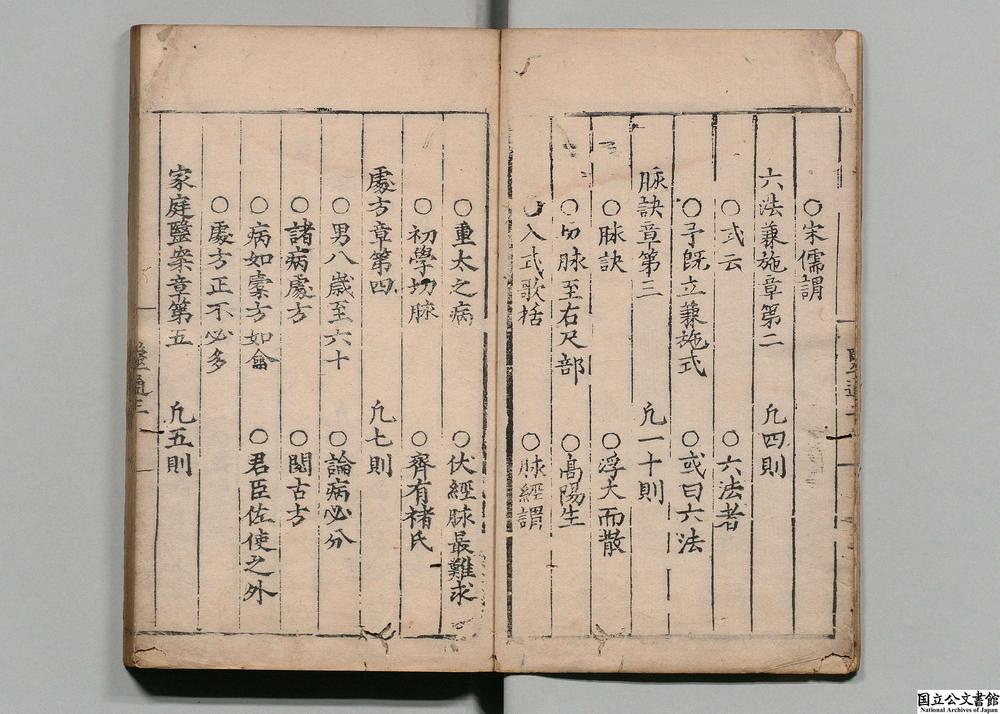 ○宋儒謂
六法蒹施章第二 凢四則
○式云 ○六法者
○予旣立蒹施式 ○或曰六法
脉訣章第三 凢一十則
○脉訣 ○浮大而散
○切脉至右尺部 ○高陽生
○入式歌括 ○脉經謂
○重太之病 ○伏經脉最難求
○初學切脉 ○齊有禇氏
處方章第四 凢七則
○男八歲至六十 ○論病必分
○諸病處方 ○閱古方
○病如橐方如龠 ○君臣佐使之外
○處方正不必多
家庭毉案章第五 凢五則
国立公文書館
National Archives of Japan